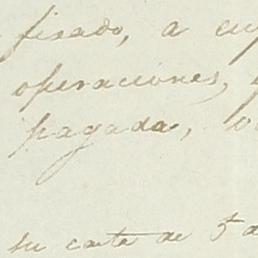 fixado, a cu
operaciones,
pagada,
su carta de 5 d